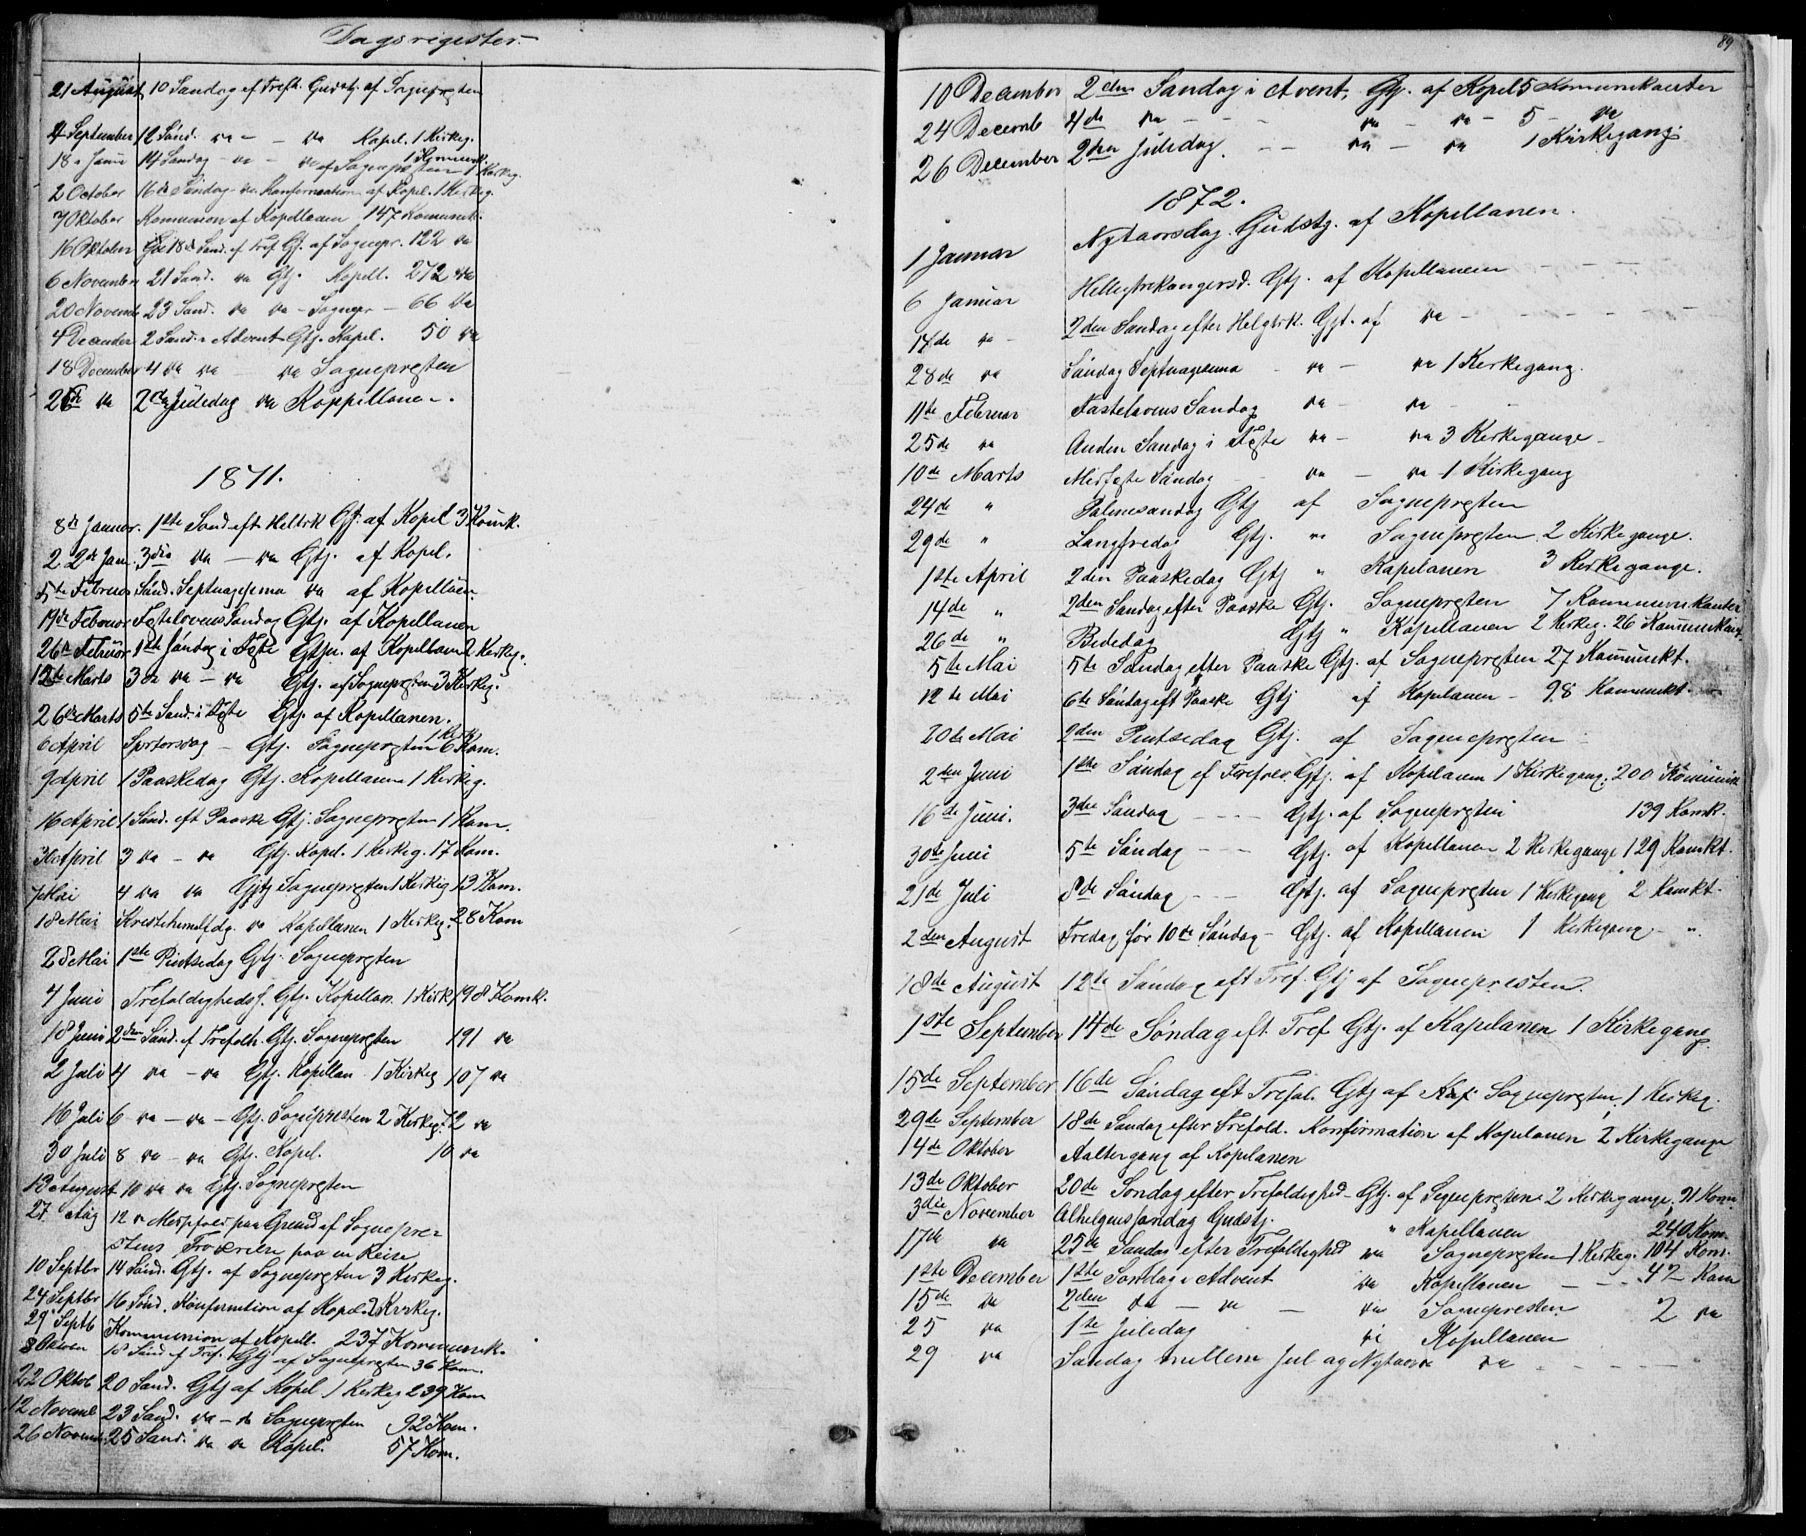 Dagsregister.
21 August 10 Sandag ef Trefh. Gudstj. af Sognepresten
4 September 12 Sönd. va - va Kapel. 1 Kirkeg.
18 " 14 Sandag - va - va af Sognepresten 1 Kirkeg.
2 October 16de Söndag - va Konfirmation af Kapel. 1 Kirkeg.
7 Oktober Komunion af Kapellanen 147 Komunik.
16 Oktober 18de Sand. ef Tref. Gj. af Sognepr. 122 va
6 November 21 Sand. va Gtj. Kapell. 272 va
20 Novemb 23 Sand. va va - Sognepr - 66 va
4 December 2 Sand. i Advent Gtj. Kapel. 50 va
18 December 4 va va - va Sognepresten
26de va 2den Juledag va Kappillane -.
1871.
8de Januar. 1ste Sand. eft Heltrk Gtj. af Kapel 3 Komk.
22de Jan. 3die va - va Gtj. af Kapel.
5te Februar Sönd. Septuagesema va af Kapellan
19de Februar Fastelavens Sandag Gtj. af Kapellanen
26de Februar 1ste Söndag i Faste Gtjn. af Kapellann 2 Kirkeg.
12te Marts 3die va - va Gtj. af Sognepresten 3 Kirkeg.
26de Marts 5te Sand. i Faste Gtj. af Kapellanen.
6 April Skrtorsdag - Gtj. Sognepresten 6 Kom.
9 April 1 Paaskedag Gtj. Kapellanen 1 Kirkeg.
16 April 1 Sönd. eft Paaske Gtj. Sognepresten 1 Kom.
30 April 3 va - va Gtj. Kapel. 1 Kirkeg. 17 Kom.
7 Mai 4 va va Gtj Sognepresten 1 Kirkeg 13 Kom.
18 Mai Kristihimelfdg. va Kapellanen 1 Kirkeg. 28 Kom
28 Mai 1ste Pintsedag Gtj. Sognepresten
4 Juni Trefoldighedsf. Gtj. Kapellan. 1 Kirk. 198 Komk.
18 Juni 2den Sönd. ef Trefoldh. Gtj. Sognepresten 191 va
2 Juli 4 va - va Gtj. Kapellan 1 Kirkeg 107 va
16 Juli 6 va - va - Gtj. Sognepresten 2 Kirkeg. 72 va
30 Juli 8 va - va Gtj. Kapel. 10 va
13 August 10 va va Gtj. Sognepresten
27 Aug 12 va Messfald paa Grund af Sognepre-
stens Fraværelse paa en Reise
10 Septbr 14 Sönd. Gtj. af Sognepresten 3 Kirkeg.
24 Septbr 16 Sönd. Konfirmation af Kapel. 2 Kirkeg.
29 Septb Kommunion af Kapell. 237 Kommunik.
8 Oktober 18 Sönd ef Tref. Gtj af Sognepresten 36 Kom.
22 Oktob 20 Sand. Gtj af Kapel 1 Kirkeg 239 Kom
12 Novemb 23 Sand. va - va Sognepresten 92 Kom.
26 Novemb. 25 Sand. va va Kapel. 57 Kom.
89
10 December 2den Sandag i Advent, Gtj. af Kapel 5 Komunikanter
24 Decemb 4de va - - - va - va - 5 - va
26 December 2den Juledag. - - va - va 1 Kirkegang.
1872.
1 Januar Nytaarsdag. Gudstj. af Kapellanen.
6 Januar Helligtrekongersd. Gtj. af Kapellanen
14de va - 2den Sandag efter Helgtrk. Gjt. af va -
28de va Söndag Septuagesema - va - va 1 Kirkegang.
11te Februar Fastelavens Sandag va - va -
25de va Anden Sandag i Faste va - va 3 Kirkegange -
10de Marts Mitfaste Söndag va - va 1 Kirkegang
24de " Palmesandag Gtj af Sognepresten
29de " Langfredag Gtj. va Sognepresten 2 Kirkegange.
1ste April 2den Paaskedag Gtj " Kapelanen 3 Kirkegange.
14de " 2den Sandag efter Paaske Gtj. Sognepresten 7 Kommunikanter
26de " Bededag Gtj " Kapellanen 2 Kirkeg. 26 Kommunikant.
5te Mai 5te Sandag efter Paaske Gtj. af Sognepresten 27 Komunkt.
12te Mai 6te Söndag eft Paaske Gtj af Kapelanen - 98 Komunkt.
20de Mai 2den Pintsedag Gtj. af Sognepresten
2den Juni 1ste Söndag ef Trefold. Gtj. af Kapelanen 1 Kirkegang. 200 Komunik
16de Juni. 3die Söndag - - - Gtj. af Sognepresten 139 Komk.
30te Juni 5te Söndag - - - Gtj. af Kapellanen 2 Kirkegange 129 Komkt.
21de Juli 8de Söndag - - Gtj. af Sognepresten 1 Kirkegang 2 Komkt.
2den August Fredag för 10de Söndag - Gtj. af Kapellanen 1 Kirkegang - ".
18de August 12te Söndag eft Tref. Gtj af Sognepresten.
1ste September 14de Søndag eft. Tref Gtj. af Kapelanen 1 Kirkegang.
15de September 16de Söndag eft Trefol. Gtj af Sognepresten. 1 Kirkeg.
29de September 18de Sandag efter Trefold. Konfirmation af Kapelanen 2 Kirkegange
4de Oktober Aaltergang af Kapelanen
13de Oktober 20de Söndag efter Trefoldighed - Gtj. af Sognepresten 2 Kirkegange, 91 Kom.
3die November Alhelgenssøndag Gudstj. " Kapellanen 240 Kom.
17de va 25de Sandag efter Trefoldighed va Sognepresten 1 Kirkeg. 104 Kom.
1ste December 1ste Söndag i Advent va Kapellanen - - - 47 Kom
15de va 2den va - va - va Sognepresten 2 va
25 va 1ste Juledag va Kapellanen
29 va Sandag mellem Jul og Nytaar va